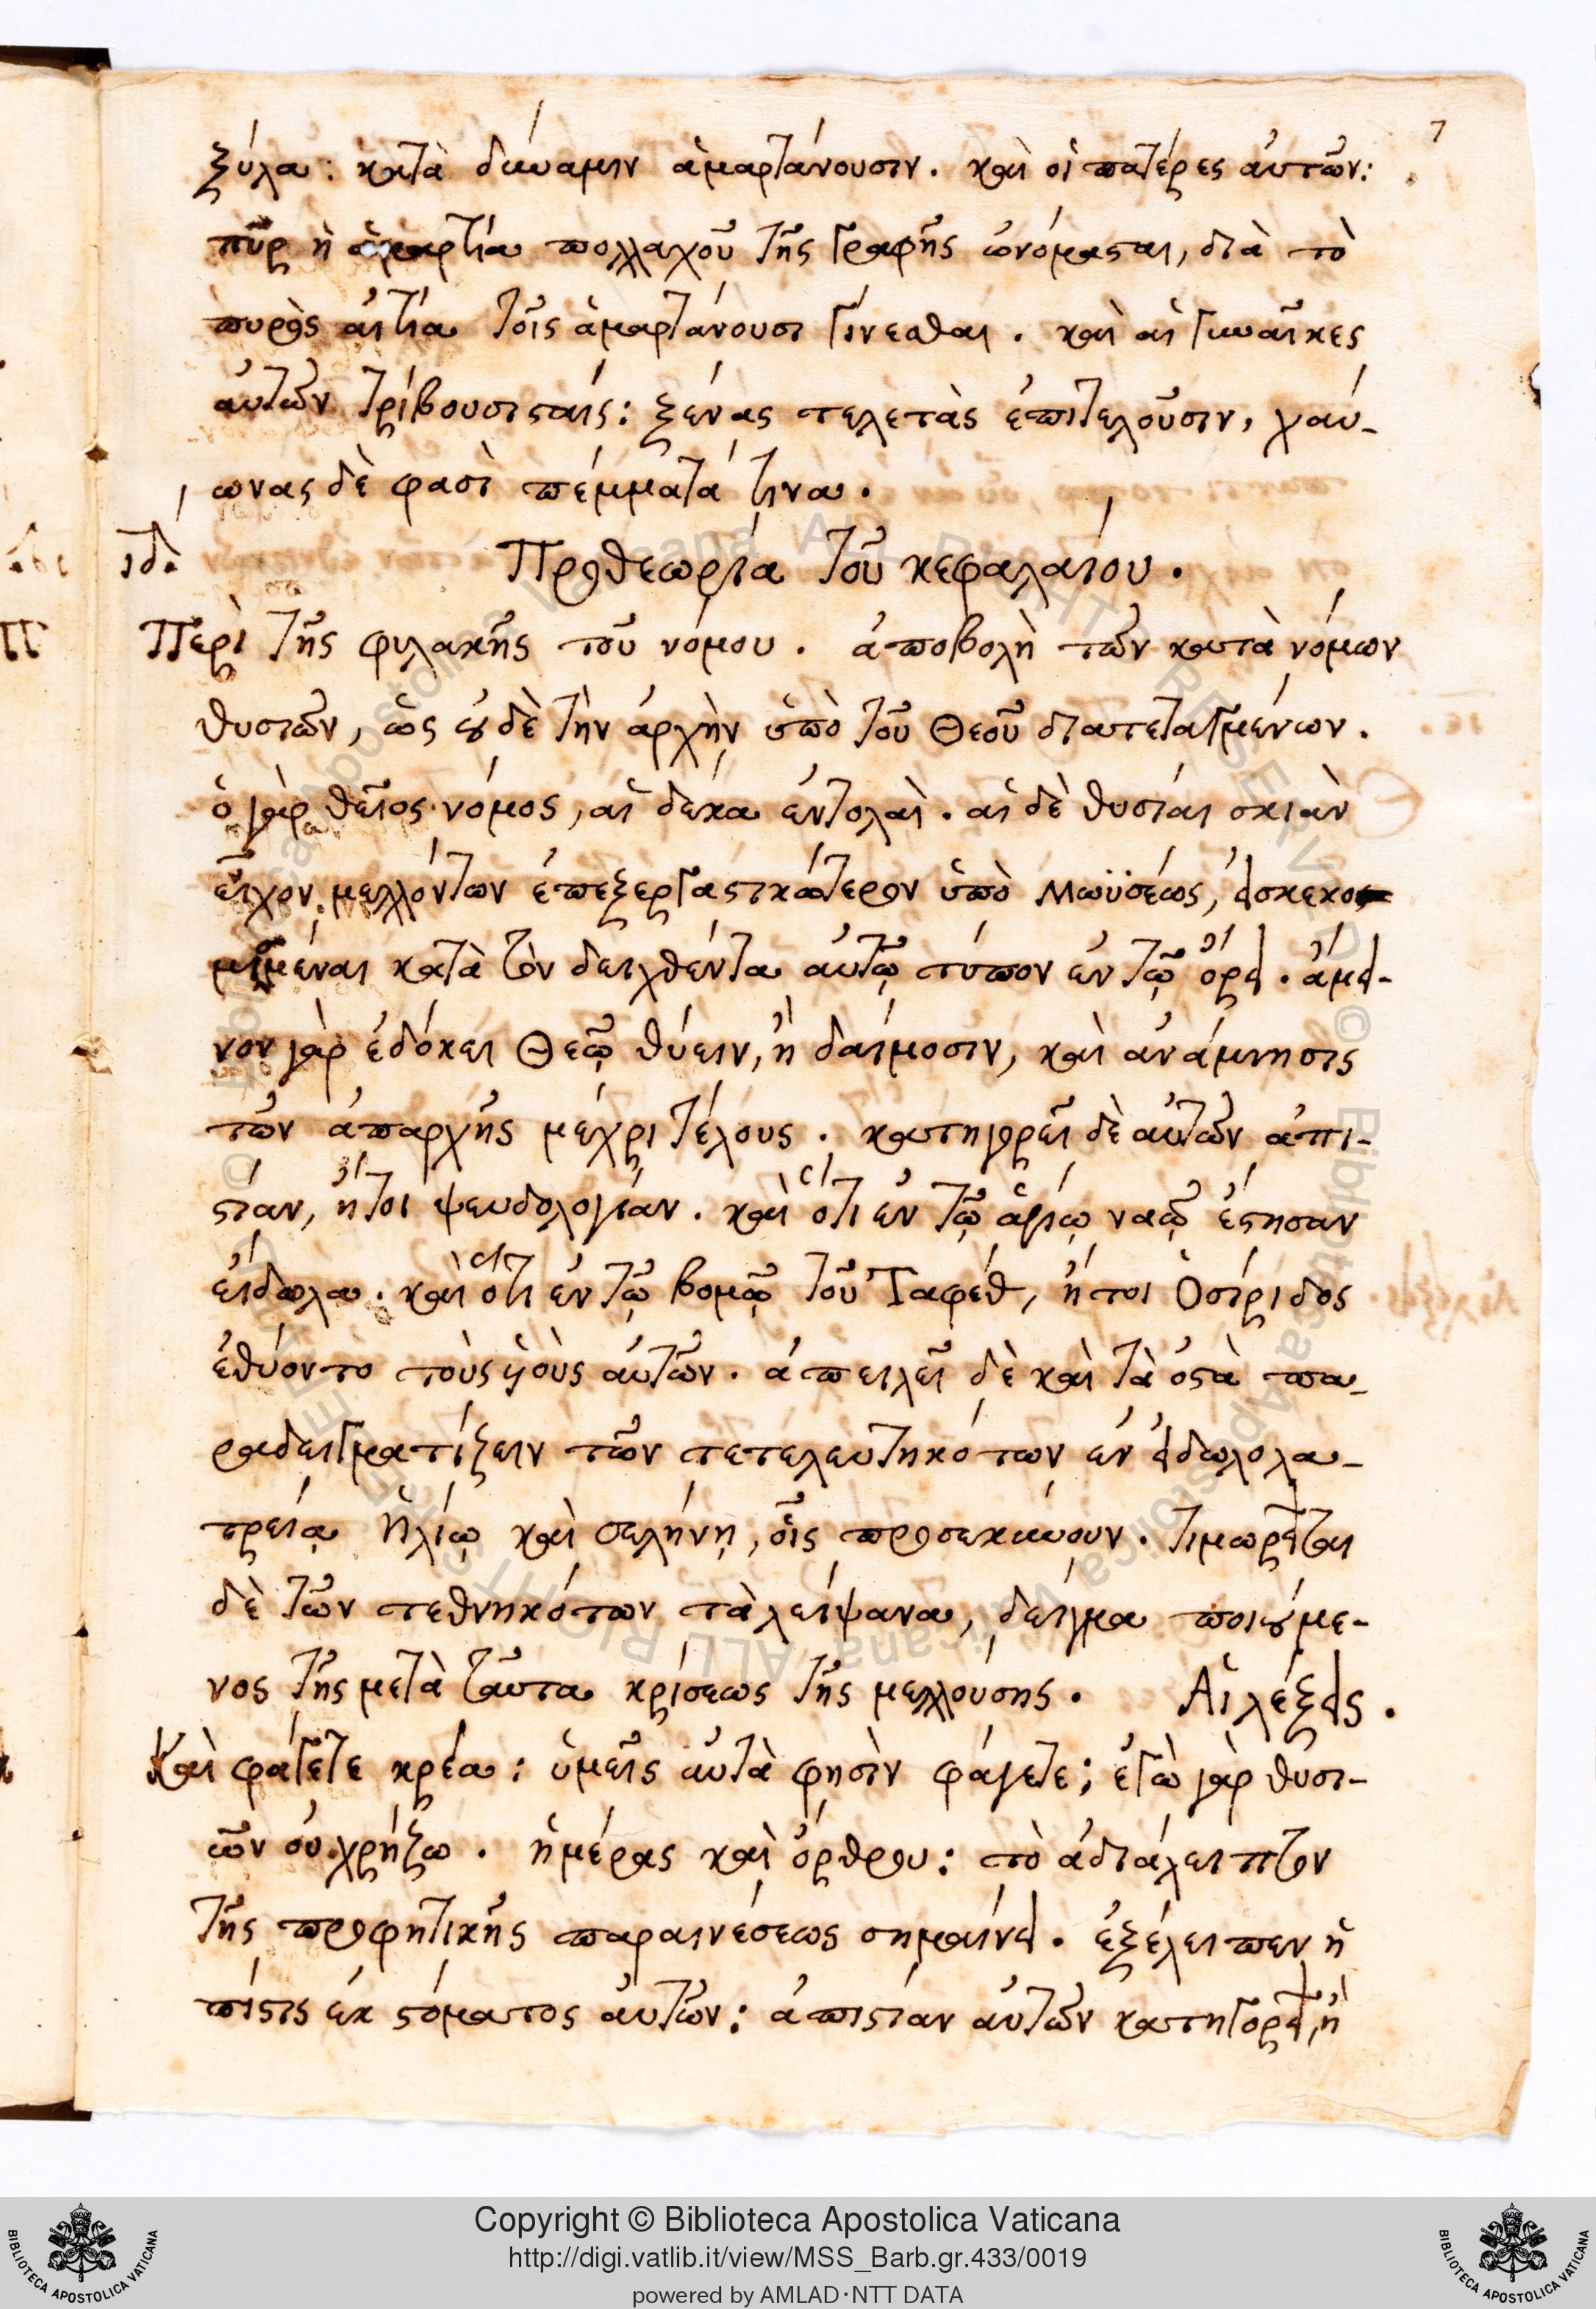 7
ξύλα: κατὰ δύναμιν ἁμαρτάνουσιν. καὶ οἱ πατέρες αὐτῶν:
πῦρ ἡ ἁμαρτία πολλαχοῦ τῆς γραφῆς ὠνόμασται, διὰ τὸ
πυρὸς αἰτία τοῖς ἁμαρτάνουσι γίνεσθαι. καὶ αἱ γυναῖκες
αὐτῶν τρίβουσι σταίς: ξένας τελετὰς ἐπιτελοῦσιν, χαύ-
ωνας δὲ φασὶ πέμματά τινα.
ιδ. Προθεωρία τοῦ κεφαλαίου.
Περὶ τῆς φυλακῆς τοῦ νόμου. ἀποβολὴ τῶν κατὰ νόμων
θυσιῶν, ὡς οὐδὲ τὴν ἀρχὴν ὑπὸ τοῦ Θεοῦ διατεταγμένων.
ὁ γὰρ θεῖος νόμος, αἱ δέκα ἐντολαὶ. αἱ δὲ θυσίαι σκιὰν
εἶχον μελλόντων ἐπεξεργαστικώτερον ὑπὸ Μωϋσέως, εἰσκεκο-
μισμέναι κατὰ τὸν δειχθέντα αὐτῷ τύπον ἐν τῷ ὄρει. ἀμει-
νον γὰρ ἐδόκει Θεῷ θύειν, ἢ δαίμοσιν, καὶ ἀνάμνησις
τῶν ἀπαρχῆς μέχρι τέλους. κατηγορεῖ δὲ αὐτῶν ἀπι-
στίαν, ἤτοι ψευδολογίαν. καὶ ὅτι ἐν τῷ ἁγίῳ ναῷ ἔστησαν
εἴδωλα. καὶ ὅτι ἐν τῷ βομῷ τοῦ Ταφέθ, ἤτοι Ὀσίριδος
ἐθύοντο τοὺς ὑιοὺς αὐτῶν. ἀπειλεῖ δὲ καὶ τὰ ὀστὰ πα-
ραδειγματίζειν τῶν τετελευτηκότων ἐν εἰδωλολα-
τρείᾳ Ἡλίῳ καὶ σελήνῃ, οἷς προσεκύνουν. τιμωρεῖται
δὲ τῶν τεθνηκότων τὰ λείψανα, δεῖγμα ποιούμε-
νος τῆς μετὰ ταῦτα κρίσεως τῆς μελλούσης. Αἱ λέξεις.
Καὶ φάγετε κρέα: ὑμεῖς αὐτὰ φησὶν φάγετε; ἐγὼ γὰρ θυσι-
ῶν οὐ χρήζω. ἡμέρας καὶ ὄρθρου: τὸ ἀδιάλειπτον
τῆς προφητικῆς παραινέσεως σημαίνει. ἐξέλειπεν ἡ
πίστις ἐκ στόματος αὐτῶν: ἀπιστίαν αὐτῶν κατηγορεῖ, ἢ
Copyright © Biblioteca Apostolica Vaticana
http://digi.vatlib.it/view/MSS_Barb.gr.433/0019
powered by AMLAD·NTT DATA
BIBLIOTECA APOSTOLICA VATICANA
BIBLIOTECA APOSTOLICA VATICANA